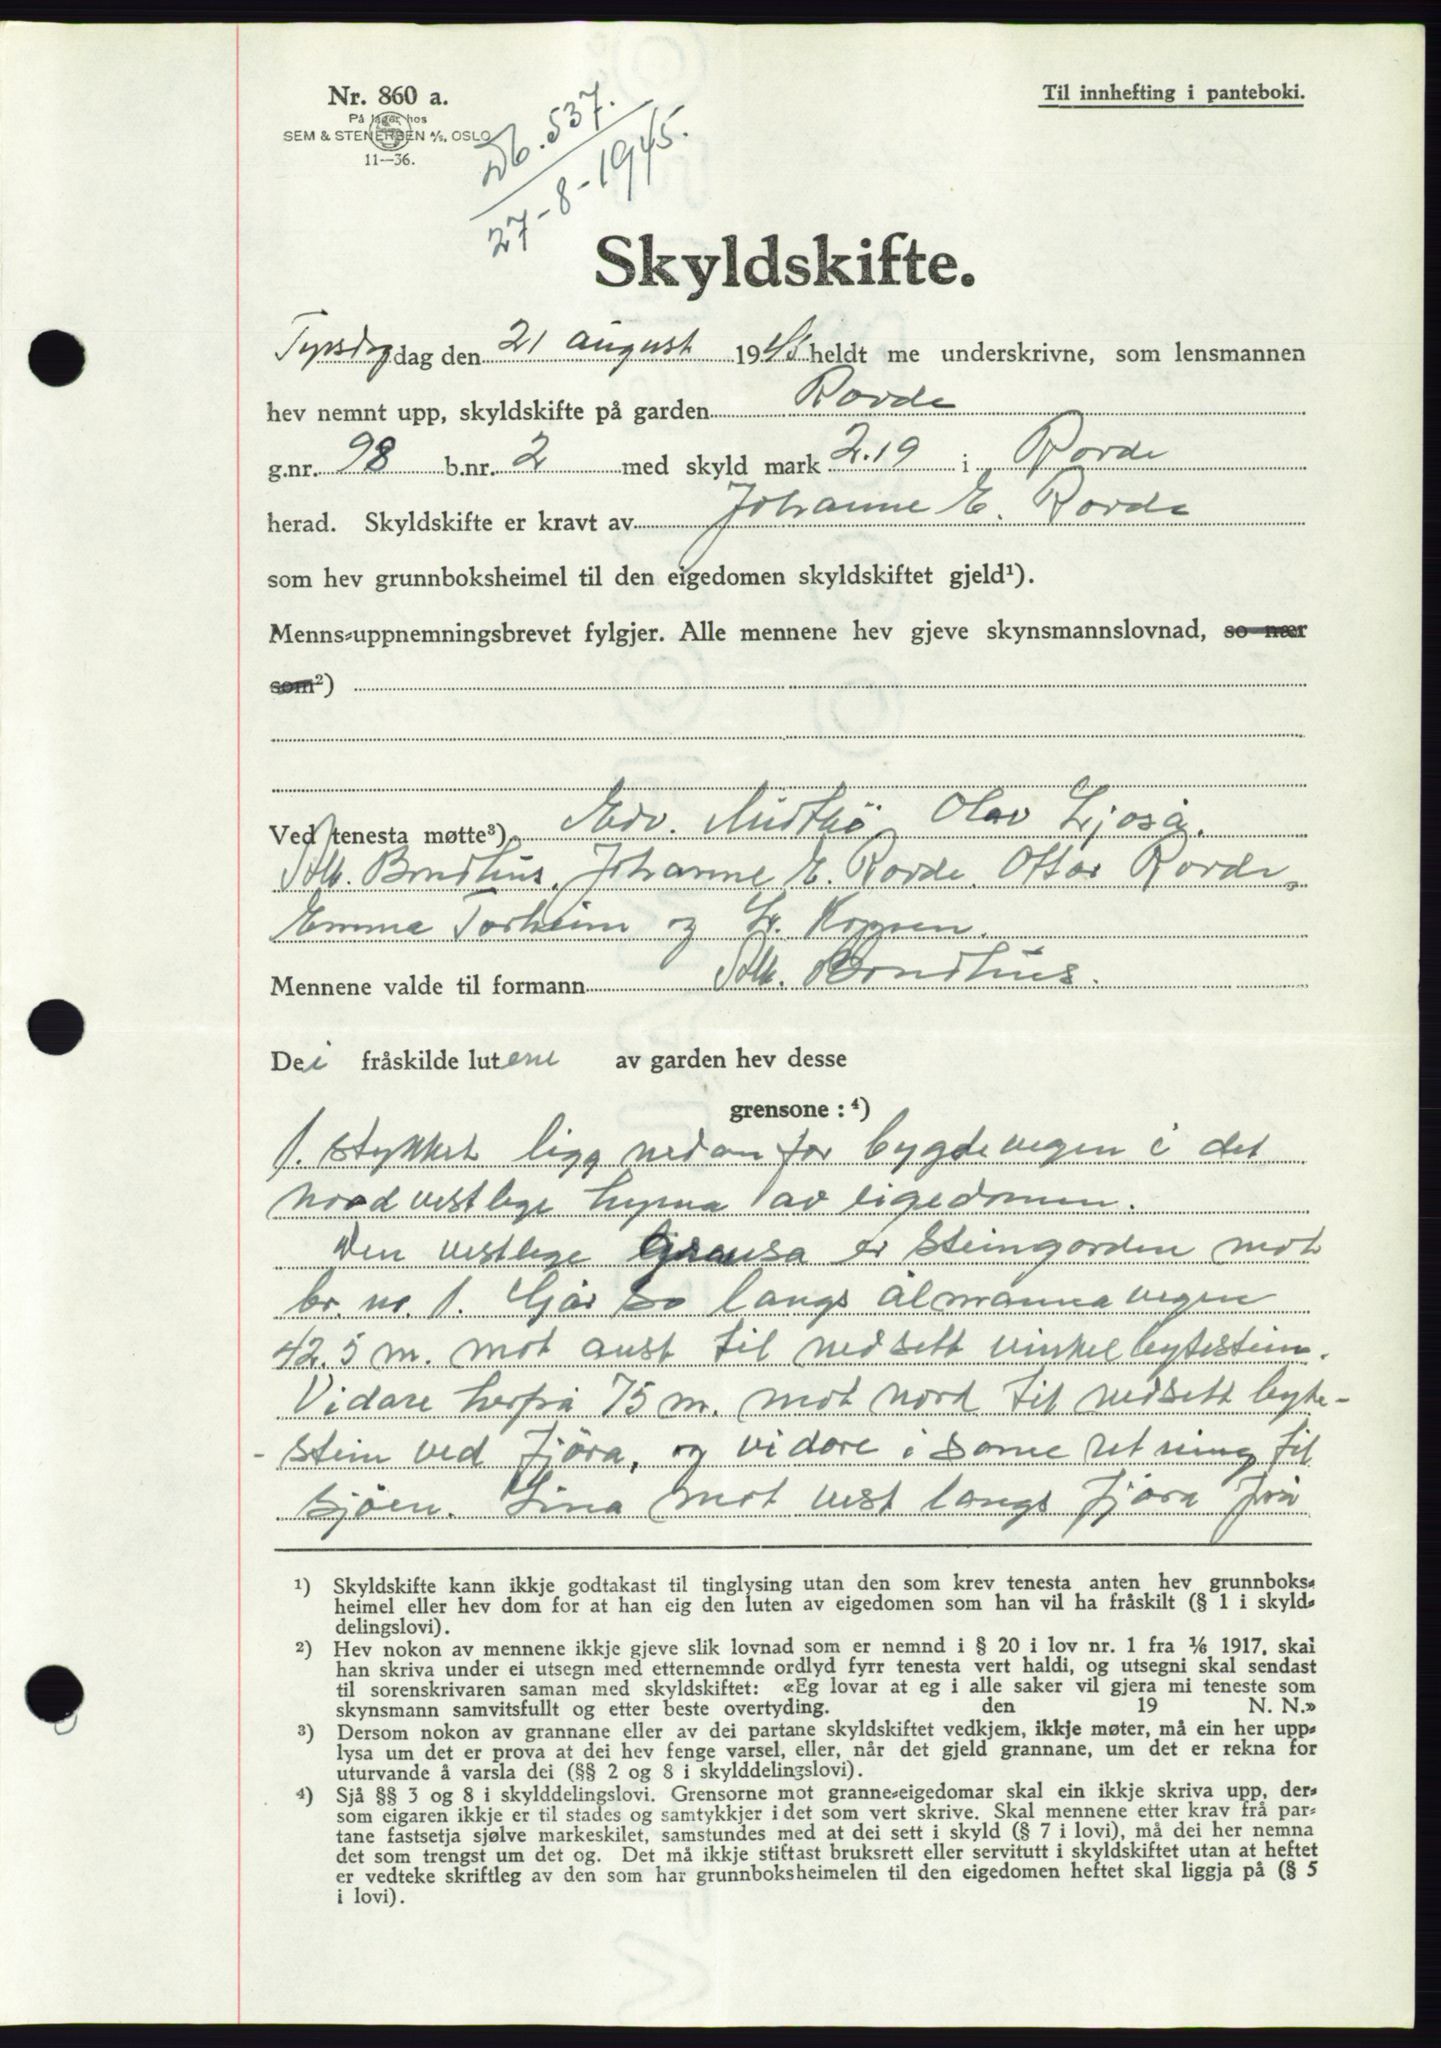 Nr. 860 a.
På lager hos
SEM & STENERSEN A/S, OSLO
11—36.
Til innhefting i panteboki.
Db. 537.
27-8-1945.
Skyldskifte.
Tysdag dag den 21 august 1945 heldt me underskrivne, som lensmannen
hev nemnt upp, skyldskifte på garden Rovde
g.nr. 98 b.nr. 2 med skyld mark 2.19 i Rovde
herad. Skyldskifte er kravt av Johanne E. Rovde
som hev grunnboksheimel til den eigedomen skyldskiftet gjeld¹).
Menns-uppnemningsbrevet fylgjer. Alle mennene hev gjeve skynsmannslovnad, so nær
som²)
Ved tenesta møtte³) Edv. Olav Ljoså.
Bondhus, Johanne E. Rovde, Ottar Rovde,
Emma Torheim og Koppen.
Mennene valde til formann Bondhus.
Dei fråskilde lutene av garden hev desse
grensone: ⁴)
1. stykket ligg nedanfor bygdevegen i det
nordvestlege hyrna av eigedomen.
Den vestlege grensa er steingarden mot
br. nr. 1. Gjår so langs ålmannavegen
42.5 m. mot aust til nedsett vinkelbytestein.
Vidare herfrå 75 m. mot nord til nedsett byte-
-stein ved fjöra, og vidare i same retning til
sjöen. Lina mot vest langs fjöra frå
¹) Skyldskifte kann ikkje godtakast til tinglysing utan den som krev tenesta anten hev grunnboks-
heimel eller hev dom for at han eig den luten av eigedomen som han vil ha fråskilt (§ 1 i skyld-
delingslovi).
²) Hev nokon av mennene ikkje gjeve slik lovnad som er nemnd i § 20 i lov nr. 1 fra 1/6 1917, skal
han skriva under ei utsegn med etternemnde ordlyd fyrr tenesta vert haldi, og utsegni skal sendast
til sorenskrivaren saman med skyldskiftet: «Eg lovar at eg i alle saker vil gjera mi teneste som
skynsmann samvitsfullt og etter beste overtyding. den 19 N. N.»
³) Dersom nokon av grannane eller av dei partane skyldskiftet vedkjem, ikkje møter, må ein her upp-
lysa um det er prova at dei hev fenge varsel, eller, når det gjeld grannane, um det er rekna for
uturvande å varsla dei (§§ 2 og 8 i skylddelingslovi).
⁴) Sjå §§ 3 og 8 i skylddelingslovi. Grensorne mot granne-eigedomar skal ein ikkje skriva upp, der-
som eigaren ikkje er til stades og samtykkjer i det som vert skrive. Skal mennene etter krav frå par-
tane fastsetja sjølve markeskilet, samstundes med at dei sett i skyld (§ 7 i lovi), må dei her nemna
det som trengst um det og. Det må ikkje stiftast bruksrett eller servitutt i skyldskiftet utan at heftet
er vedteke skriftleg av den som har grunnboksheimelen til den eigedomen heftet skal liggja på (§ 5
i lovi).